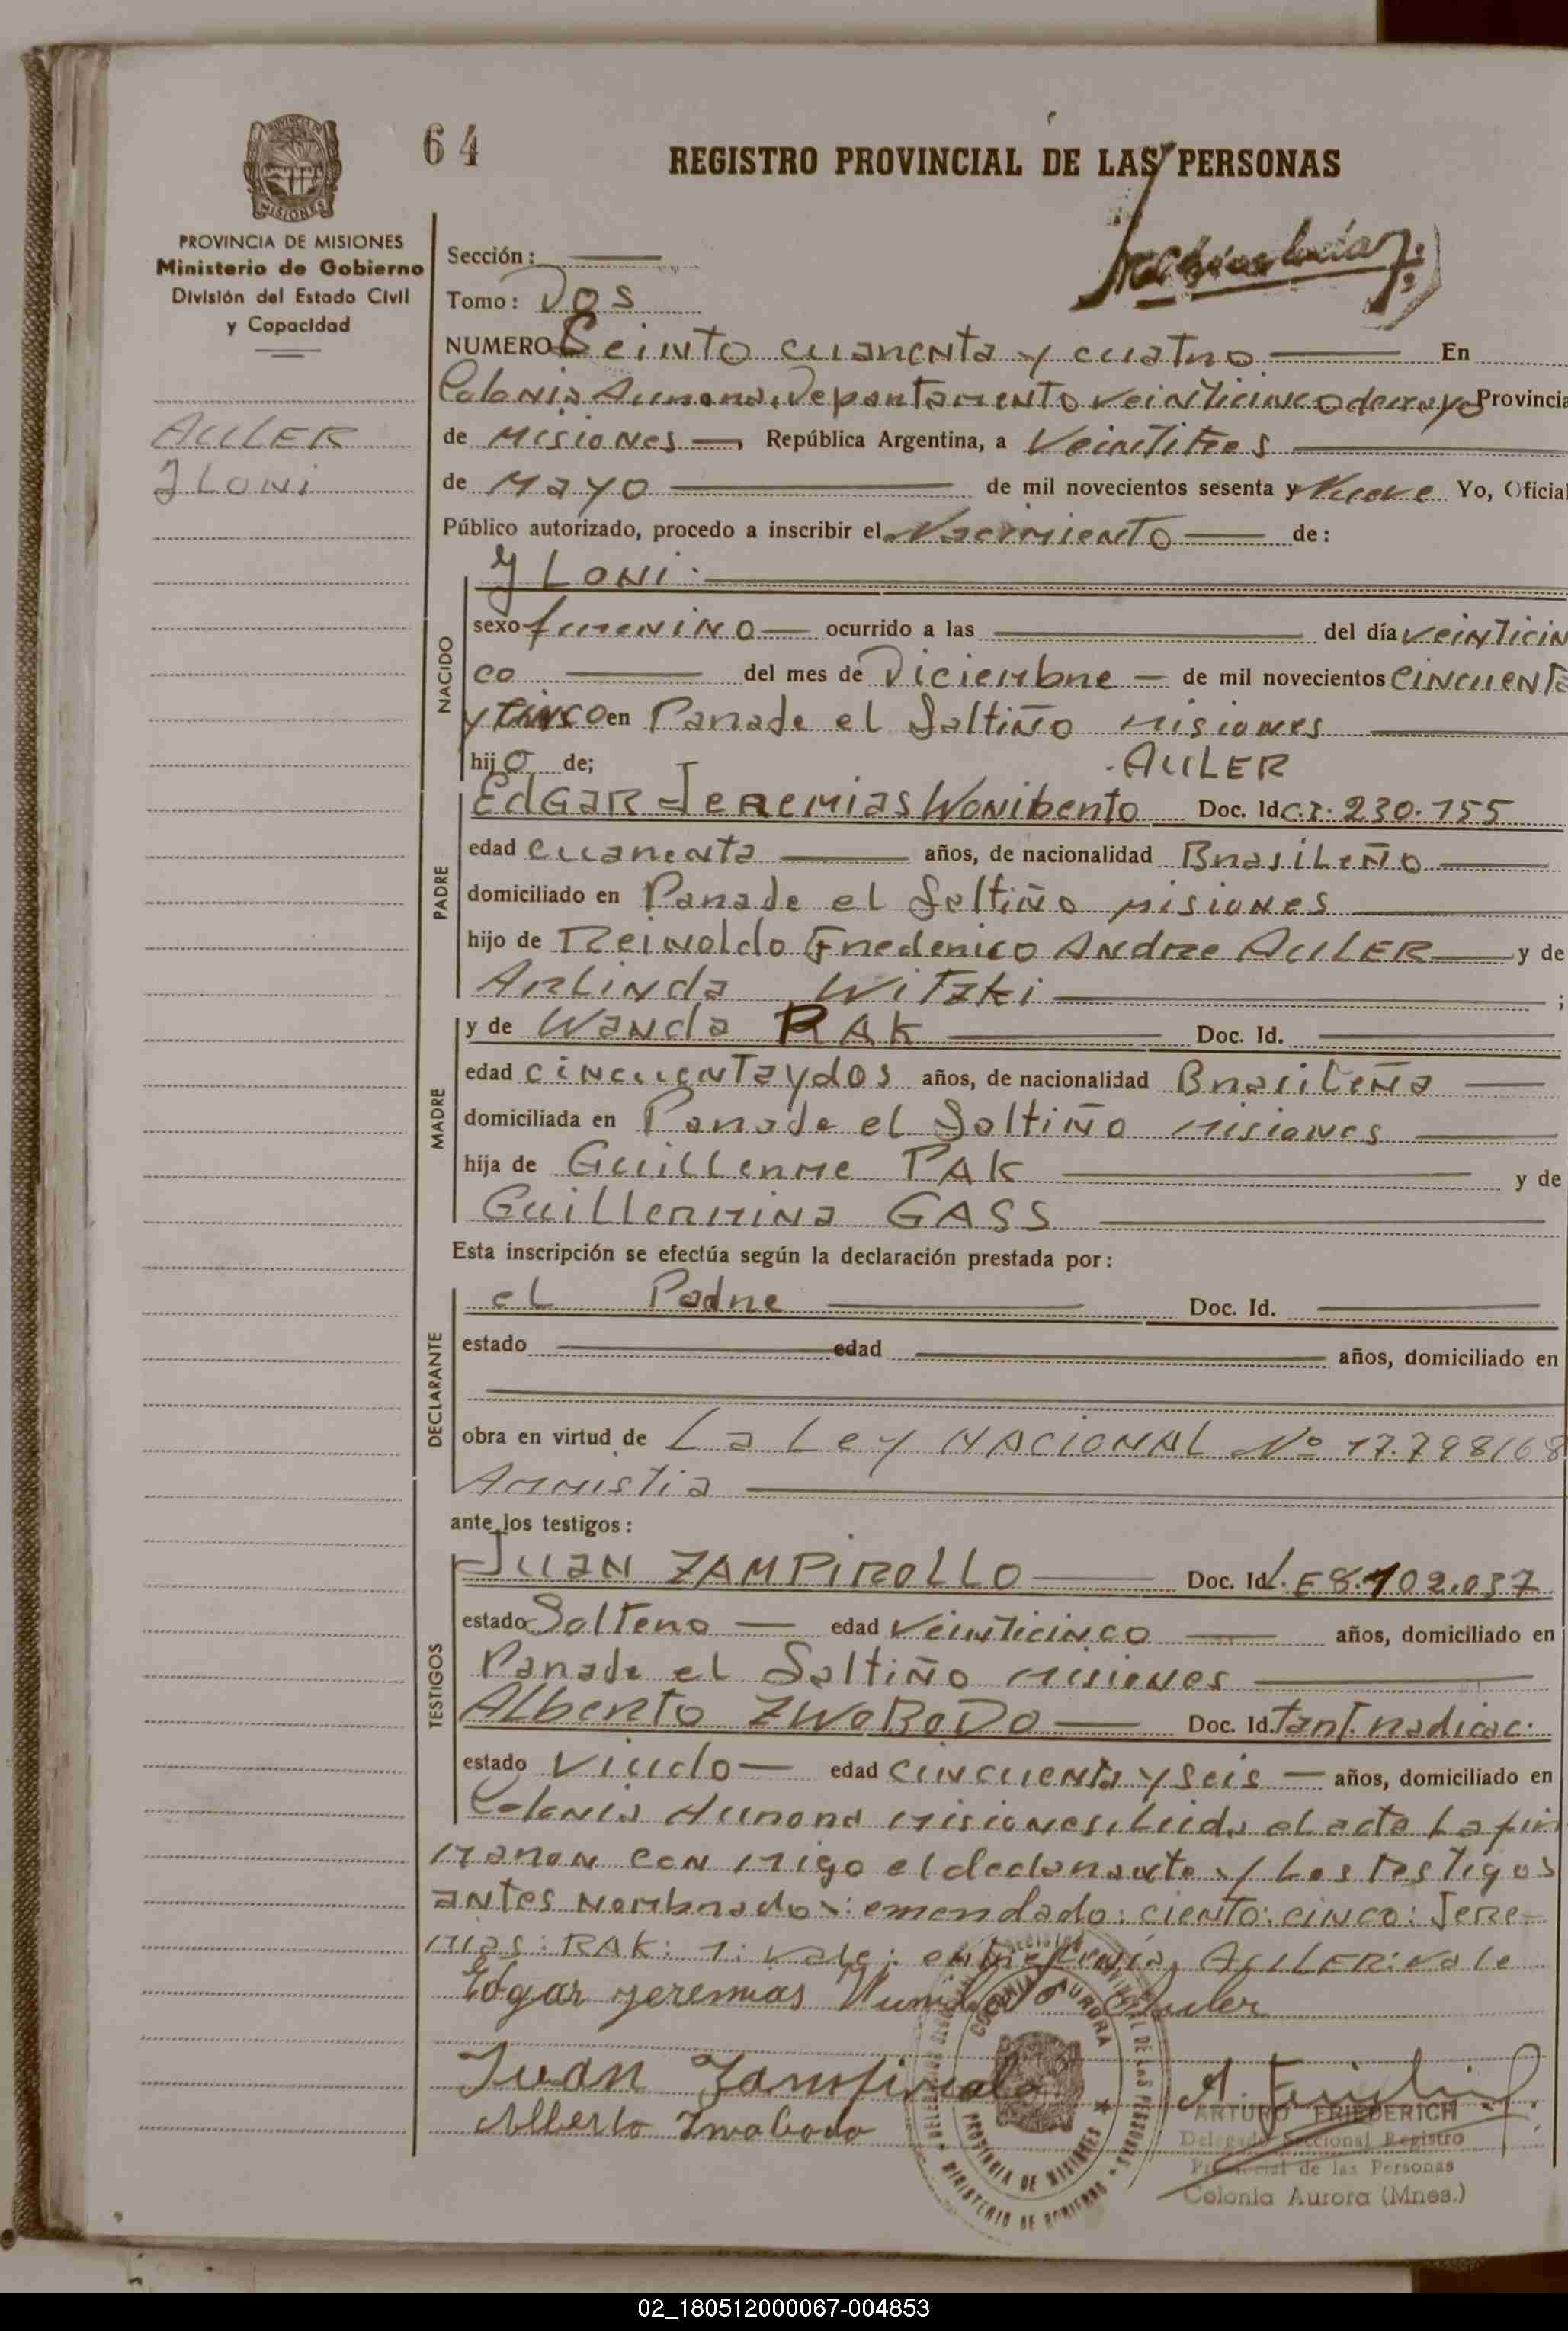 64
REGISTRO PROVINCIAL DE LAS PERSONAS
MISIONES
PROVINCIA DE MISIONES
Ministerio de Gobierno
División del Estado Civil
y Capacidad
AULER
JLONI
Sección:
Tomo: Dos
NUMERO Ceinto cuarenta y cuatro En
Colonia Aurora, Departamento Veinticinco de mayo Provincia
de Misiones, República Argentina, a Veintitres
de Mayo de mil novecientos sesenta y Nueve Yo, Oficial
Público autorizado, procedo a inscribir el Nacimiento de:
JLONI
NACIDO
sexo femenino ocurrido a las del día veinticin
co del mes de Diciembre de mil novecientos CINCUENTA
y CINCO en Parade el Saltiño Misiones
hijo de; AULER
PADRE
EdGaR JeREMias Woniberto Doc. Id C.I. 230.155
edad cuarenta años, de nacionalidad Brasileño
domiciliado en Parade el Saltiño Misiones
hijo de Reinoldo Frederico ANdRe AULER y de
ARLiNda WiTzki ;
MADRE
y de WaNda RAK Doc. Id.
edad cincuentaydos años, de nacionalidad Brasileña
domiciliada en Parade el Saltiño Misiones
hija de Guillerme RAK y de
Guillermina GASS
Esta inscripción se efectúa según la declaración prestada por:
DECLARANTE
el Padre Doc. Id.
estado edad años, domiciliado en
obra en virtud de La Ley NACIONAL Nº 17.798/68
Amnistia
ante los testigos:
TESTIGOS
JuaN ZAMPIROLLO Doc. Id L.E 8.102.037
estado Soltero edad Veinticinco años, domiciliado en
Parade el Saltiño Misiones
ALberto ZWOBODO Doc. Id. Tant. radicac.
estado Viudo edad cincuenta y seis años, domiciliado en
Colonia Aurora Misiones, Liida el acta La fir
maron con migo el declarante y Los testigos
antes nombrados: emendado: ciento: cinco: Jere-
mias: RAK: 1: vale: entrelinia, AULER: vale
Edgar jeremias Auler
Juan Zampirolo
Alberto Zwobodo
COLONIA AURORA
PROVINCIA DE MISIONES
MINISTERIO DE GOBIERNO
ARTURO FRIEDERICH
Delegado Seccional Registro
Provincial de las Personas
Colonia Aurora (Mnes.)
02_180512000067-004853